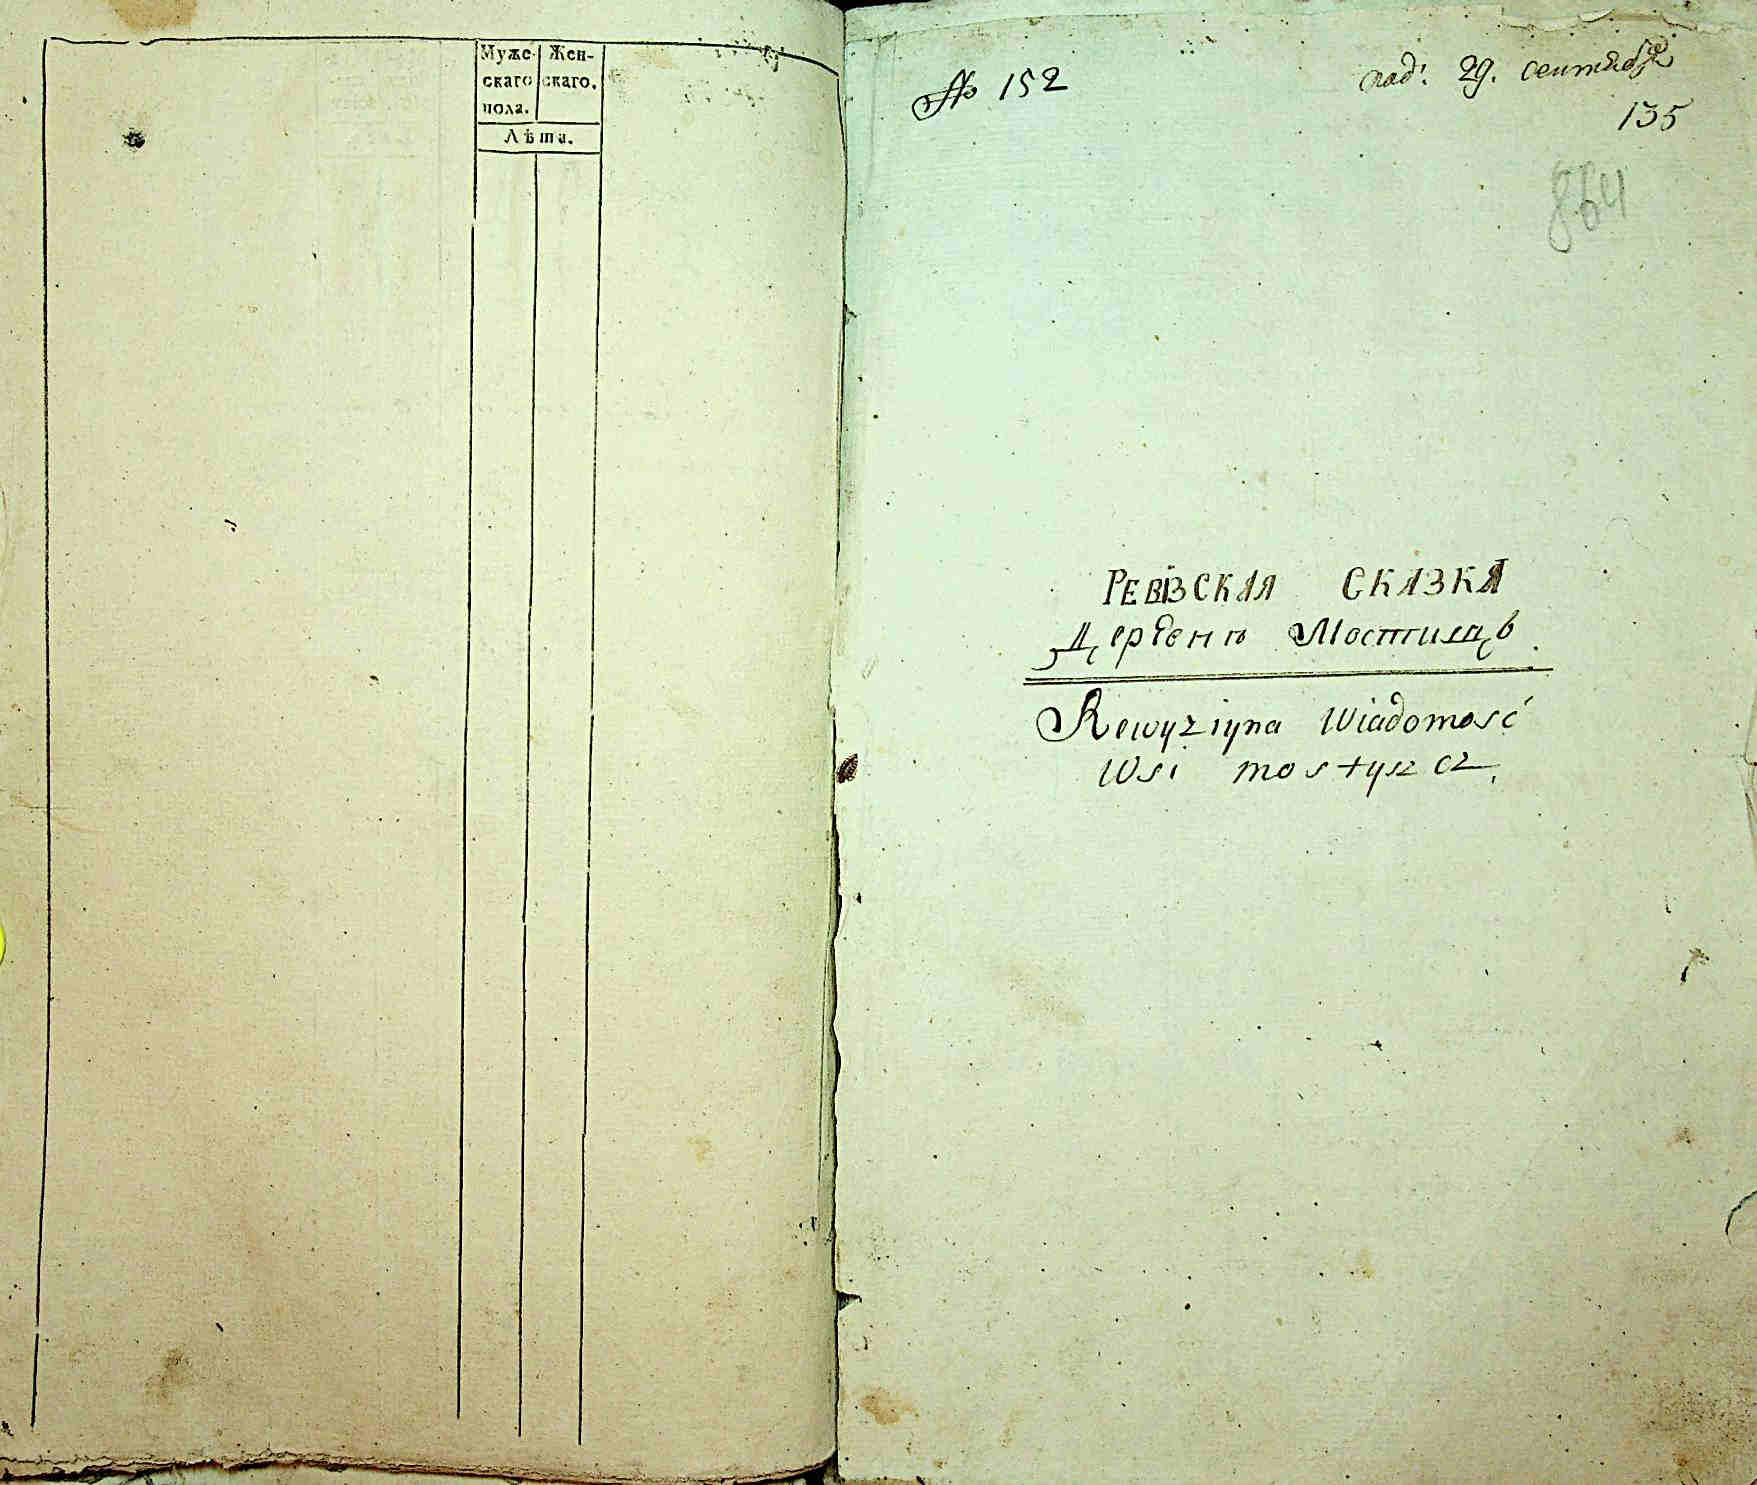 Муже- Жен-
скаго скаго.
пола.
Лѣта.
№ 152
под: 29. сентября
135
864
РЕВІЗСКАЯ СКАЗКА
Деревни Мостищъ.
Rewyziyna Wiadomość
Wsi mostyszcz.